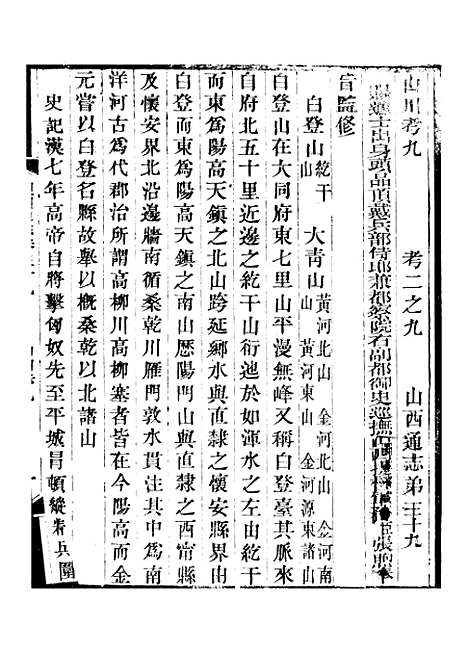 山川考九　考二之九　山西通志第三十九
進士出身頭品頂戴兵部侍郎兼都察院右副都御史巡撫山西　臣張煦
旨監修
白登山　紇干山　大青山　黃河北山　黃河東山　金河北山　金河源東諸山　金河南山
白登山在大同府東七里山平漫無峰又名白登臺其脈來
自府北五十里近邊之紇干山衍迆於如渾水之左由紇干
而東為陽高天鎮之北山跨延鄉水與直隸之懷安縣界由
白登而東為陽高天鎮之南山歷陽門山與直隸之西甯縣
及懷安界北沿邊牆南循桑乾川雁門敦水貫注其中為南
洋河古為代郡治所謂高柳川高柳塞者皆在今陽高而金
元嘗以白登名縣故舉以概桑乾以北諸山
史記漢七年高帝自將擊匈奴先至平城冒頓縱精兵圍